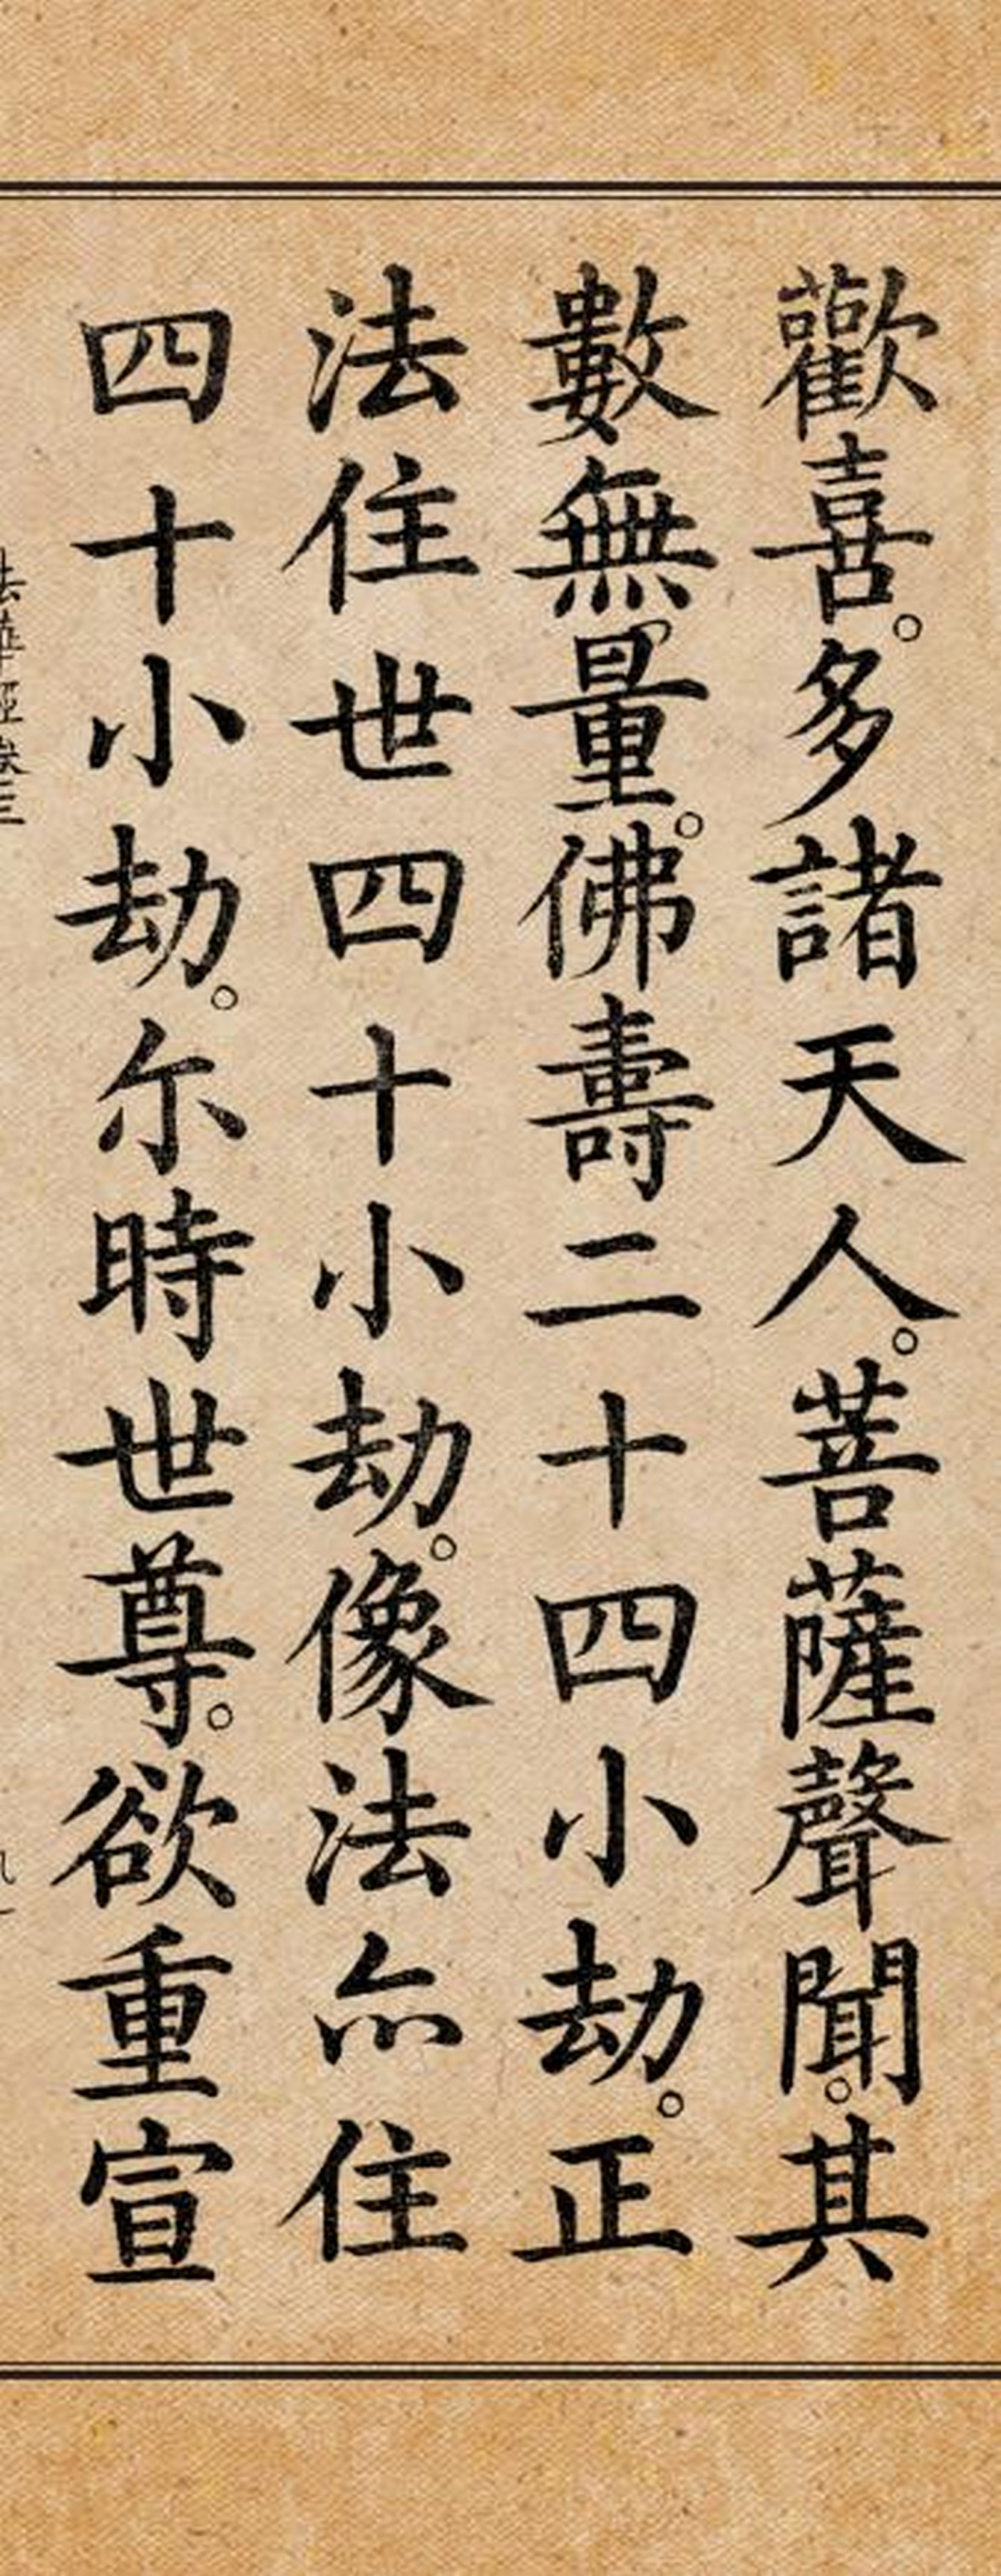 歡喜。多諸天人。菩薩聲聞。其
數無量。佛壽二十四小劫。正
法住世四十小劫。像法亦住
四十小劫。尒時世尊。欲重宣